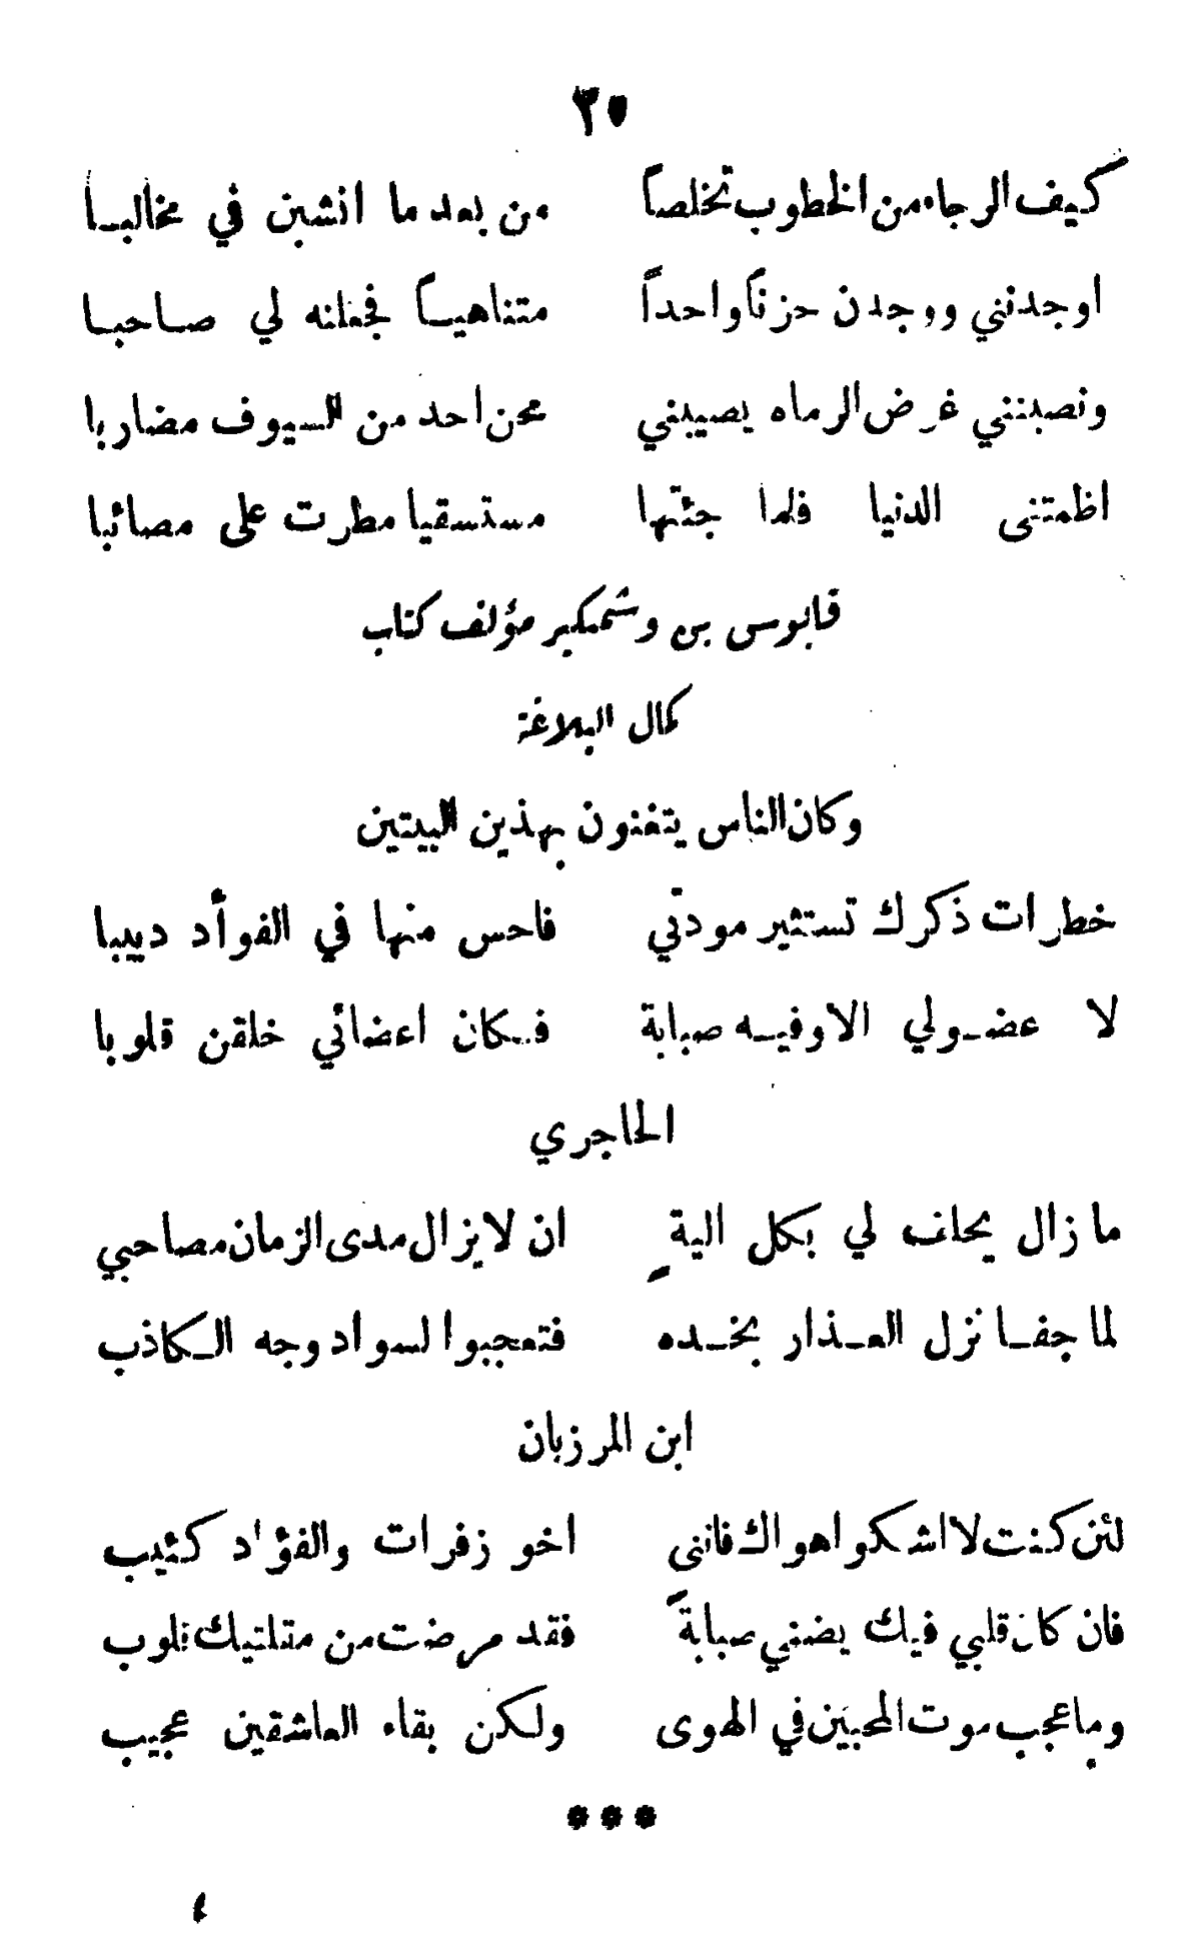 ٢٥
كيف الرجاء من الخطوب تخلصاً من بعد ما انشبن في مخالبا
اوجدنني ووجدن حزناً واحداً متناهياً فجعلنه لي صاحبا
ونصبنني غرض الرماه يصيبني محن احد من السيوف مضاربا
اظمتنى الدنيا فلما جئتها مستسقيا مطرت على مصائبا
قابوس بن وشمكير مؤلف كتاب
كمال البلاغة
وكان الناس يتغنون بهذين البيتين
خطرات ذكرك تستثير مودتي فاحس منها في الفوأد دبيبا
لا عضولي الاوفيه صبابة فكان اعضائي خلقن قلوبا
الحاجري
ما زال يحلف لي بكل اليةٍ ان لا يزال مدى الزمان مصاحبي
لما جفا نزل العذار بخده فتعجبوا لسواد وجه الكاذب
ابن المرزبان
لئن كنت لا اشكو اهواك فاننى اخو زفرات والفؤاد كئيب
فان كان قلبي فيك يضني صبابةً فقد مرضت من مقلتيك قلوب
وما عجب موت المحبين في الهوى ولكن بقاء العاشقين عجيب
***
٤